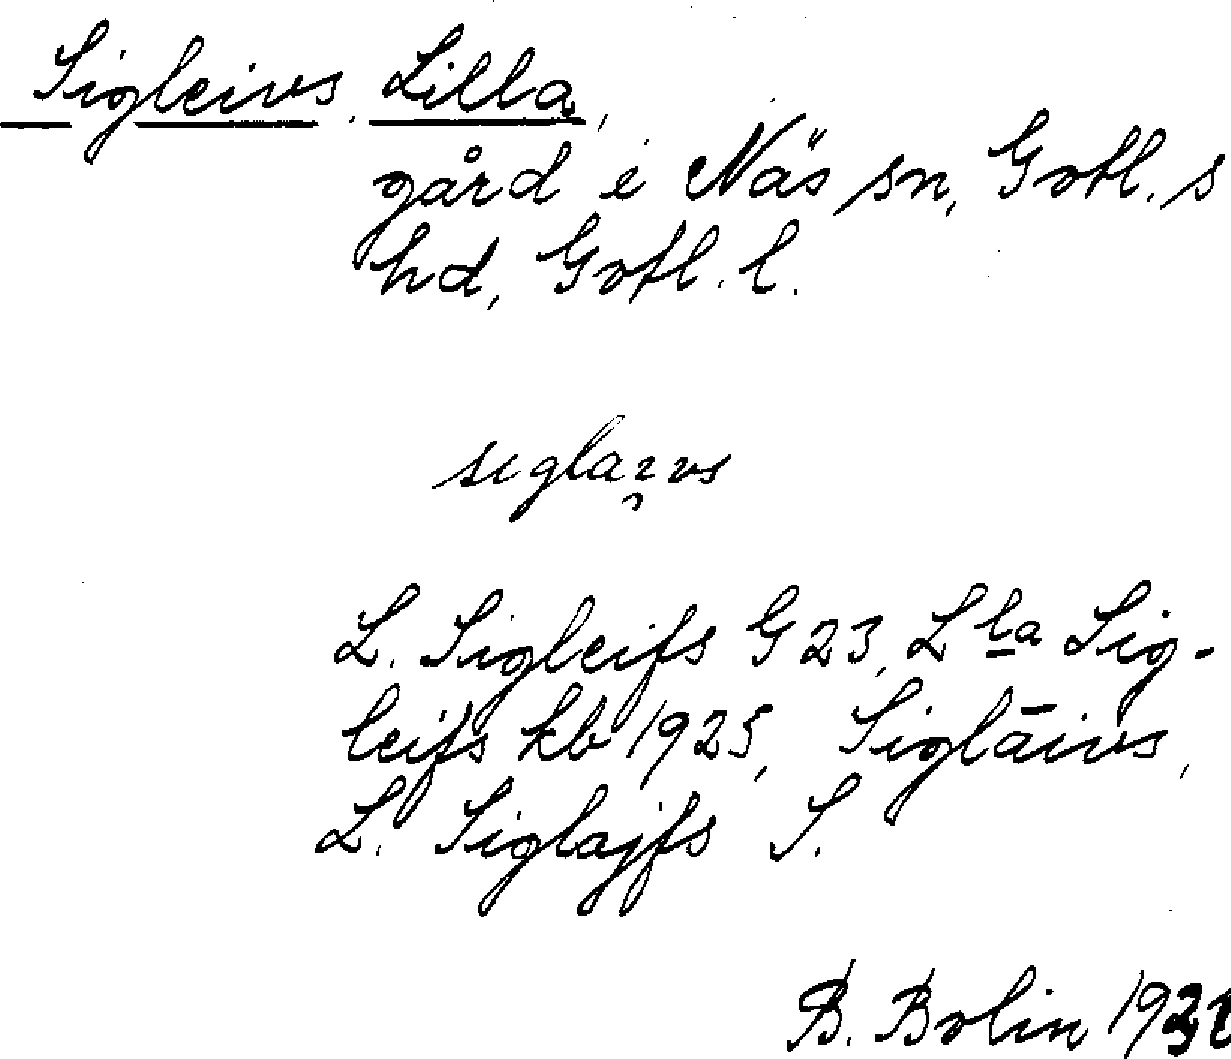 Sigleivs, Lilla,
gård i Näs sn, Gotl. s
hd, Gotl. l.
L. Sigleifs G 23, L la Sig-
leifs kb 1925, Sigläivs,
L. Siglajfs S.
B. Bolin